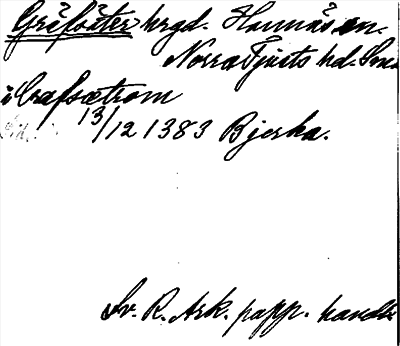 Gräfsäter hrgd. Hannäs sn.
Norra Tjusts hd. Sm
i Grafsætrom
13/12 1383 Bjerka.
Sv. R. Ark. papp. handl